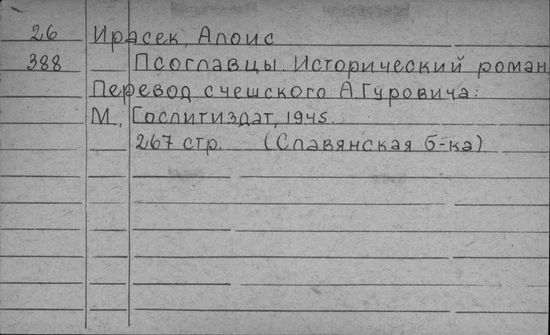 26 Ирасек, Алоис
388 Псоглавцы. Исторический роман
Перевод с чешского А. Гуровича:
М., Гослитиздат, 1945.
267 стр. (Славянская б-ка)